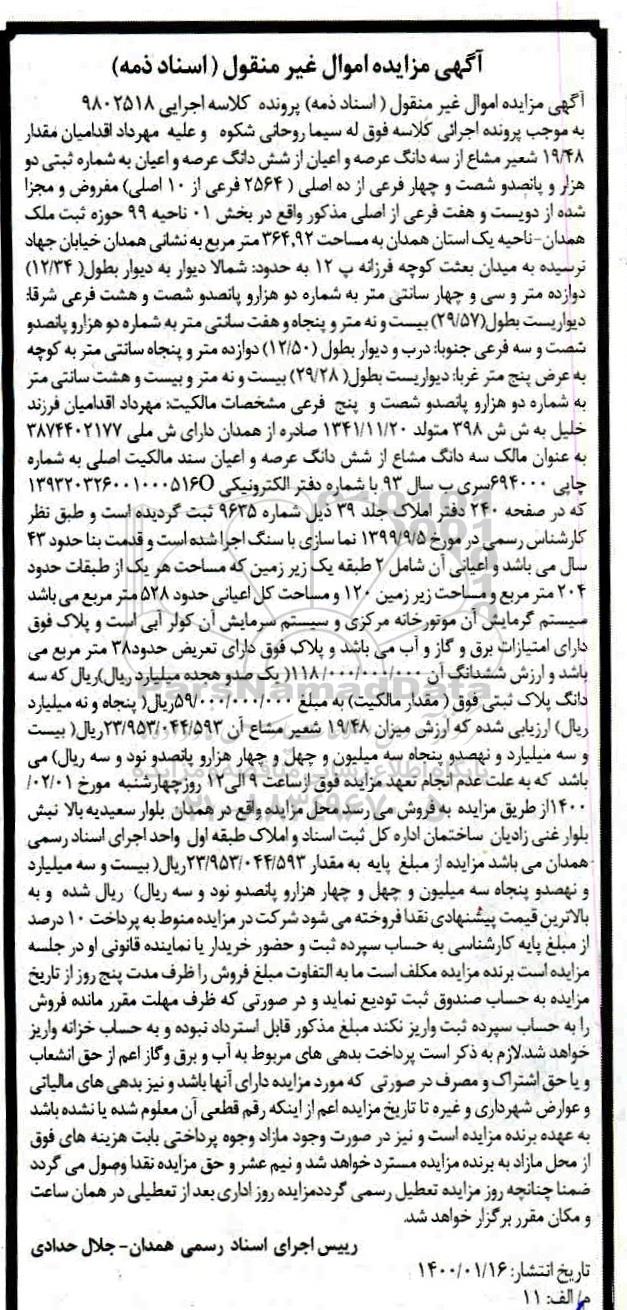 آگهی مزایده اموال غیر منقول ( اسناد ذمه)
آگهی مزایده اموال غیر منقول ( اسناد ذمه) پرونده کلاسه اجرایی ۹۸۰۲۵۱۸
به موجب پرونده اجرائی کلاسه فوق له سیما روحانی شکوه و علیه مهرداد اقدامیان مقدار
۱۹/۴۸ شعیر مشاع از سه دانگ عرصه و اعیان از شش دانگ عرصه و اعیان به شماره ثبتی دو
هزار و پانصدو شصت و چهار فرعی از ده اصلی ( ۲۵۶۴ فرعی از ۱۰ اصلی) مفروض و مجزا
شده از دویست و هفت فرعی از اصلی مذکور واقع در بخش ۰۱ ناحیه ۹۹ حوزه ثبت ملک
همدان-ناحیه یک استان همدان به مساحت ۳۶۴,۹۲ متر مربع به نشانی همدان خیابان جهاد
نرسیده به میدان بعثت کوچه فرزانه پ ۱۲ به حدود: شمالا دیوار به دیوار بطول( ۱۲/۳۴)
دوازده متر و سی و چهار سانتی متر به شماره دو هزارو پانصدو شصت و هشت فرعی شرقا:
دیواریست بطول(۲۹/۵۷) بیست و نه متر و پنجاه و هفت سانتی متر به شماره دو هزارو پانصدو
شصت و سه فرعی جنوبا: درب و دیوار بطول (۱۲/۵۰) دوازده متر و پنجاه سانتی متر به کوچه
به عرض پنج متر غربا: دیواریست بطول( ۲۹/۲۸) بیست و نه متر و بیست و هشت سانتی متر
به شماره دو هزارو پانصدو شصت و پنج فرعی مشخصات مالکیت: مهرداد اقدامیان فرزند
خلیل به ش ش ۳۹۸ متولد ۱۳۴۱/۱۱/۲۰ صادره از همدان دارای ش ملی ۳۸۷۴۴۰۲۱۷۷
به عنوان مالک سه دانگ مشاع از شش دانگ عرصه و اعیان سند مالکیت اصلی به شماره
چاپی ۶۹۴۰۰۰سری ب سال ۹۳ با شماره دفتر الکترونیکی ۱۳۹۳۲۰۳۲۶۰۰۱۰۰۰۵۱۶O
که در صفحه ۲۴۰ دفتر املاک جلد ۳۹ ذیل شماره ۹۶۳۵ ثبت گردیده است و طبق نظر
کارشناس رسمی در مورخ ۱۳۹۹/۹/۵ نما سازی با سنگ اجرا شده است و قدمت بنا حدود ۴۳
سال می باشد و اعیانی آن شامل ۲ طبقه یک زیر زمین که مساحت هر یک از طبقات حدود
۲۰۴ متر مربع و مساحت زیر زمین ۱۲۰ و مساحت کل اعیانی حدود ۵۲۸ متر مربع می باشد
سیستم گرمایش آن موتورخانه مرکزی و سیستم سرمایش آن کولر آبی است و پلاک فوق
دارای امتیازات برق و گاز و آب می باشد و پلاک فوق دارای تعریض حدود۳۸ متر مربع می
باشد و ارزش ششدانگ آن۱۱۸/۰۰۰/۰۰۰/۰۰۰( یک صدو هجده میلیارد ریال)ریال که سه
دانگ پلاک ثبتی فوق ( مقدار مالکیت) به مبلغ ۵۹/۰۰۰/۰۰۰/۰۰۰ریال( پنجاه و نه میلیارد
ریال) ارزیابی شده که ارزش میزان ۱۹/۴۸ شعیر مشاع آن ۲۳/۹۵۳/۰۴۴/۵۹۳ریال( بیست
و سه میلیارد و نهصدو پنجاه سه میلیون و چهل و چهار هزارو پانصدو نود و سه ریال) می
باشد که به علت عدم انجام تعهد مزایده فوق ازساعت ۹ الی۱۲ روزچهارشنبه مورخ ۰۲/۰۱/
۱۴۰۰از طریق مزایده به فروش می رسد محل مزایده واقع در همدان بلوار سعیدیه بالا نبش
بلوار غنی زادیان ساختمان اداره کل ثبت اسناد و املاک طبقه اول واحد اجرای اسناد رسمی
همدان می باشد مزایده از مبلغ پایه به مقدار ۲۳/۹۵۳/۰۴۴/۵۹۳ریال( بیست و سه میلیارد
و نهصدو پنجاه سه میلیون و چهل و چهار هزارو پانصدو نود و سه ریال) ریال شده و به
بالاترین قیمت پیشنهادی نقدا فروخته می شود شرکت در مزایده منوط به پرداخت ۱۰ درصد
از مبلغ پایه کارشناسی به حساب سپرده ثبت و حضور خریدار یا نماینده قانونی او در جلسه
مزایده است برنده مزایده مکلف است ما به التفاوت مبلغ فروش را ظرف مدت پنج روز از تاریخ
مزایده به حساب صندوق ثبت تودیع نماید و در صورتی که ظرف مهلت مقرر مانده فروش
را به حساب سپرده ثبت واریز نکند مبلغ مذکور قابل استرداد نبوده و به حساب خزانه واریز
خواهد شد.لازم به ذکر است پرداخت بدهی های مربوط به آب و برق وگاز اعم از حق انشعاب
و یا حق اشتراک و مصرف در صورتی که مورد مزایده دارای آنها باشد و نیز بدهی های مالیاتی
و عوارض شهرداری و غیره تا تاریخ مزایده اعم از اینکه رقم قطعی آن معلوم شده یا نشده باشد
به عهده برنده مزایده است و نیز در صورت وجود مازاد وجوه پرداختی بابت هزینه های فوق
از محل مازاد به برنده مزایده مسترد خواهد شد و نیم عشر و حق مزایده نقدا وصول می گردد
ضمنا چنانچه روز مزایده تعطیل رسمی گرددمزایده روز اداری بعد از تعطیلی در همان ساعت
و مکان مقرر برگزار خواهد شد.
رییس اجرای اسناد رسمی همدان- جلال حدادی
تاریخ انتشار: ۱۴۰۰/۰۱/۱۶
م/ الف: ۱۱
ParsNamadData